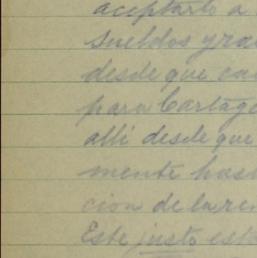 aceptarlo a
sueldos y ra
desde que ca
para Cartage
allí desde que
mente has
cion de la re
Este justo est